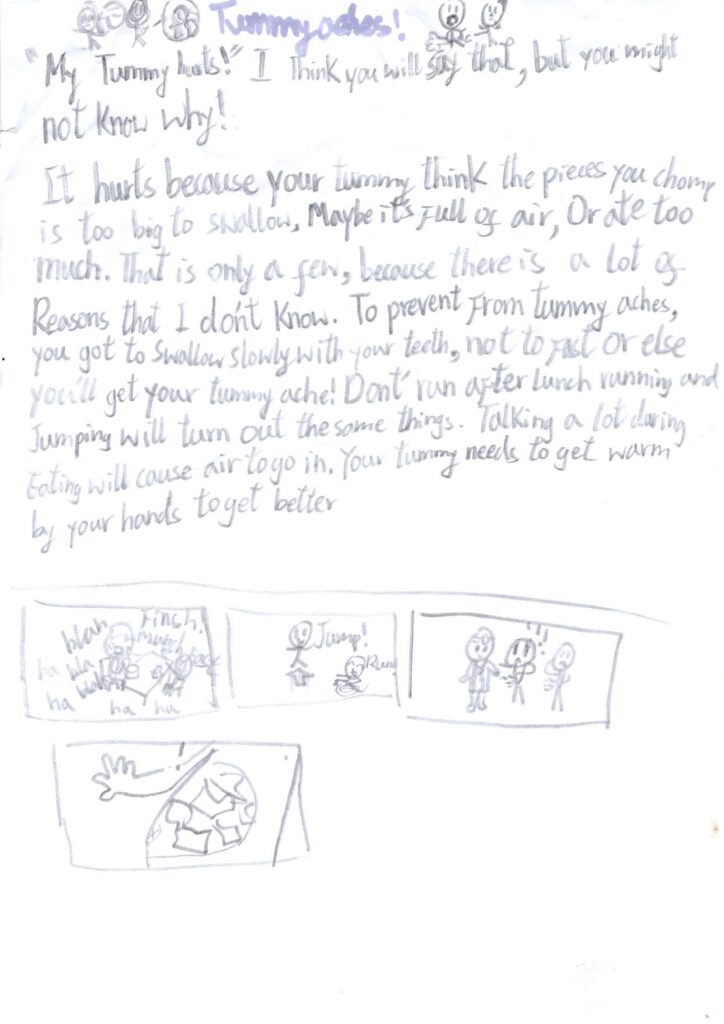 Tummy aches!
"My Tummy hurts!" I Think you will say that, but you might
not Know why!
It hurts because your tummy think the pieces you chomp
is too big to swallow, Maybe it's Full of air, Or ate too
much. That is only a few, because there is a lot of
Reasons that I don't Know. To prevent From tummy aches,
you got to swallow slowly with your teeth, not to fast or else
you'll get your tummy ache! Dont' run after lunch running and
Jumping will turn out the same things. Talking a lot during
Eating will cause air to go in. Your tummy needs to get warm
by your hands to get better
blah Finish,
ha bla
ha
ha ha
Jump!
Run
!!
!